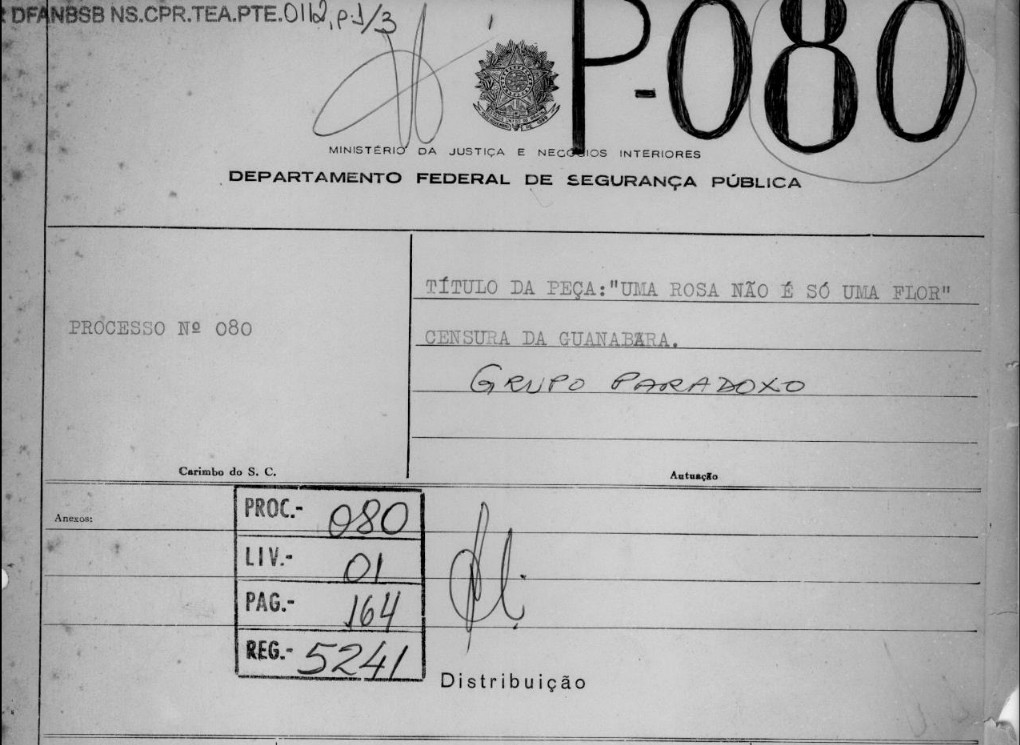 DFANBSB NS.CPR.TEA.PTE.0112, p.1/3
P-080
MINISTÉRIO DA JUSTIÇA E NEGÓCIOS INTERIORES
DEPARTAMENTO FEDERAL DE SEGURANÇA PÚBLICA
PROCESSO Nº 080
TÍTULO DA PEÇA:"UMA ROSA NÃO É SÓ UMA FLOR"
CENSURA DA GUANABARA.
GRUPO PARADOXO
Carimbo do S. C.
Autuação
Anexos:
PROC.- 080
LIV.- 01
PAG.- 164
REG.- 5241
Distribuição